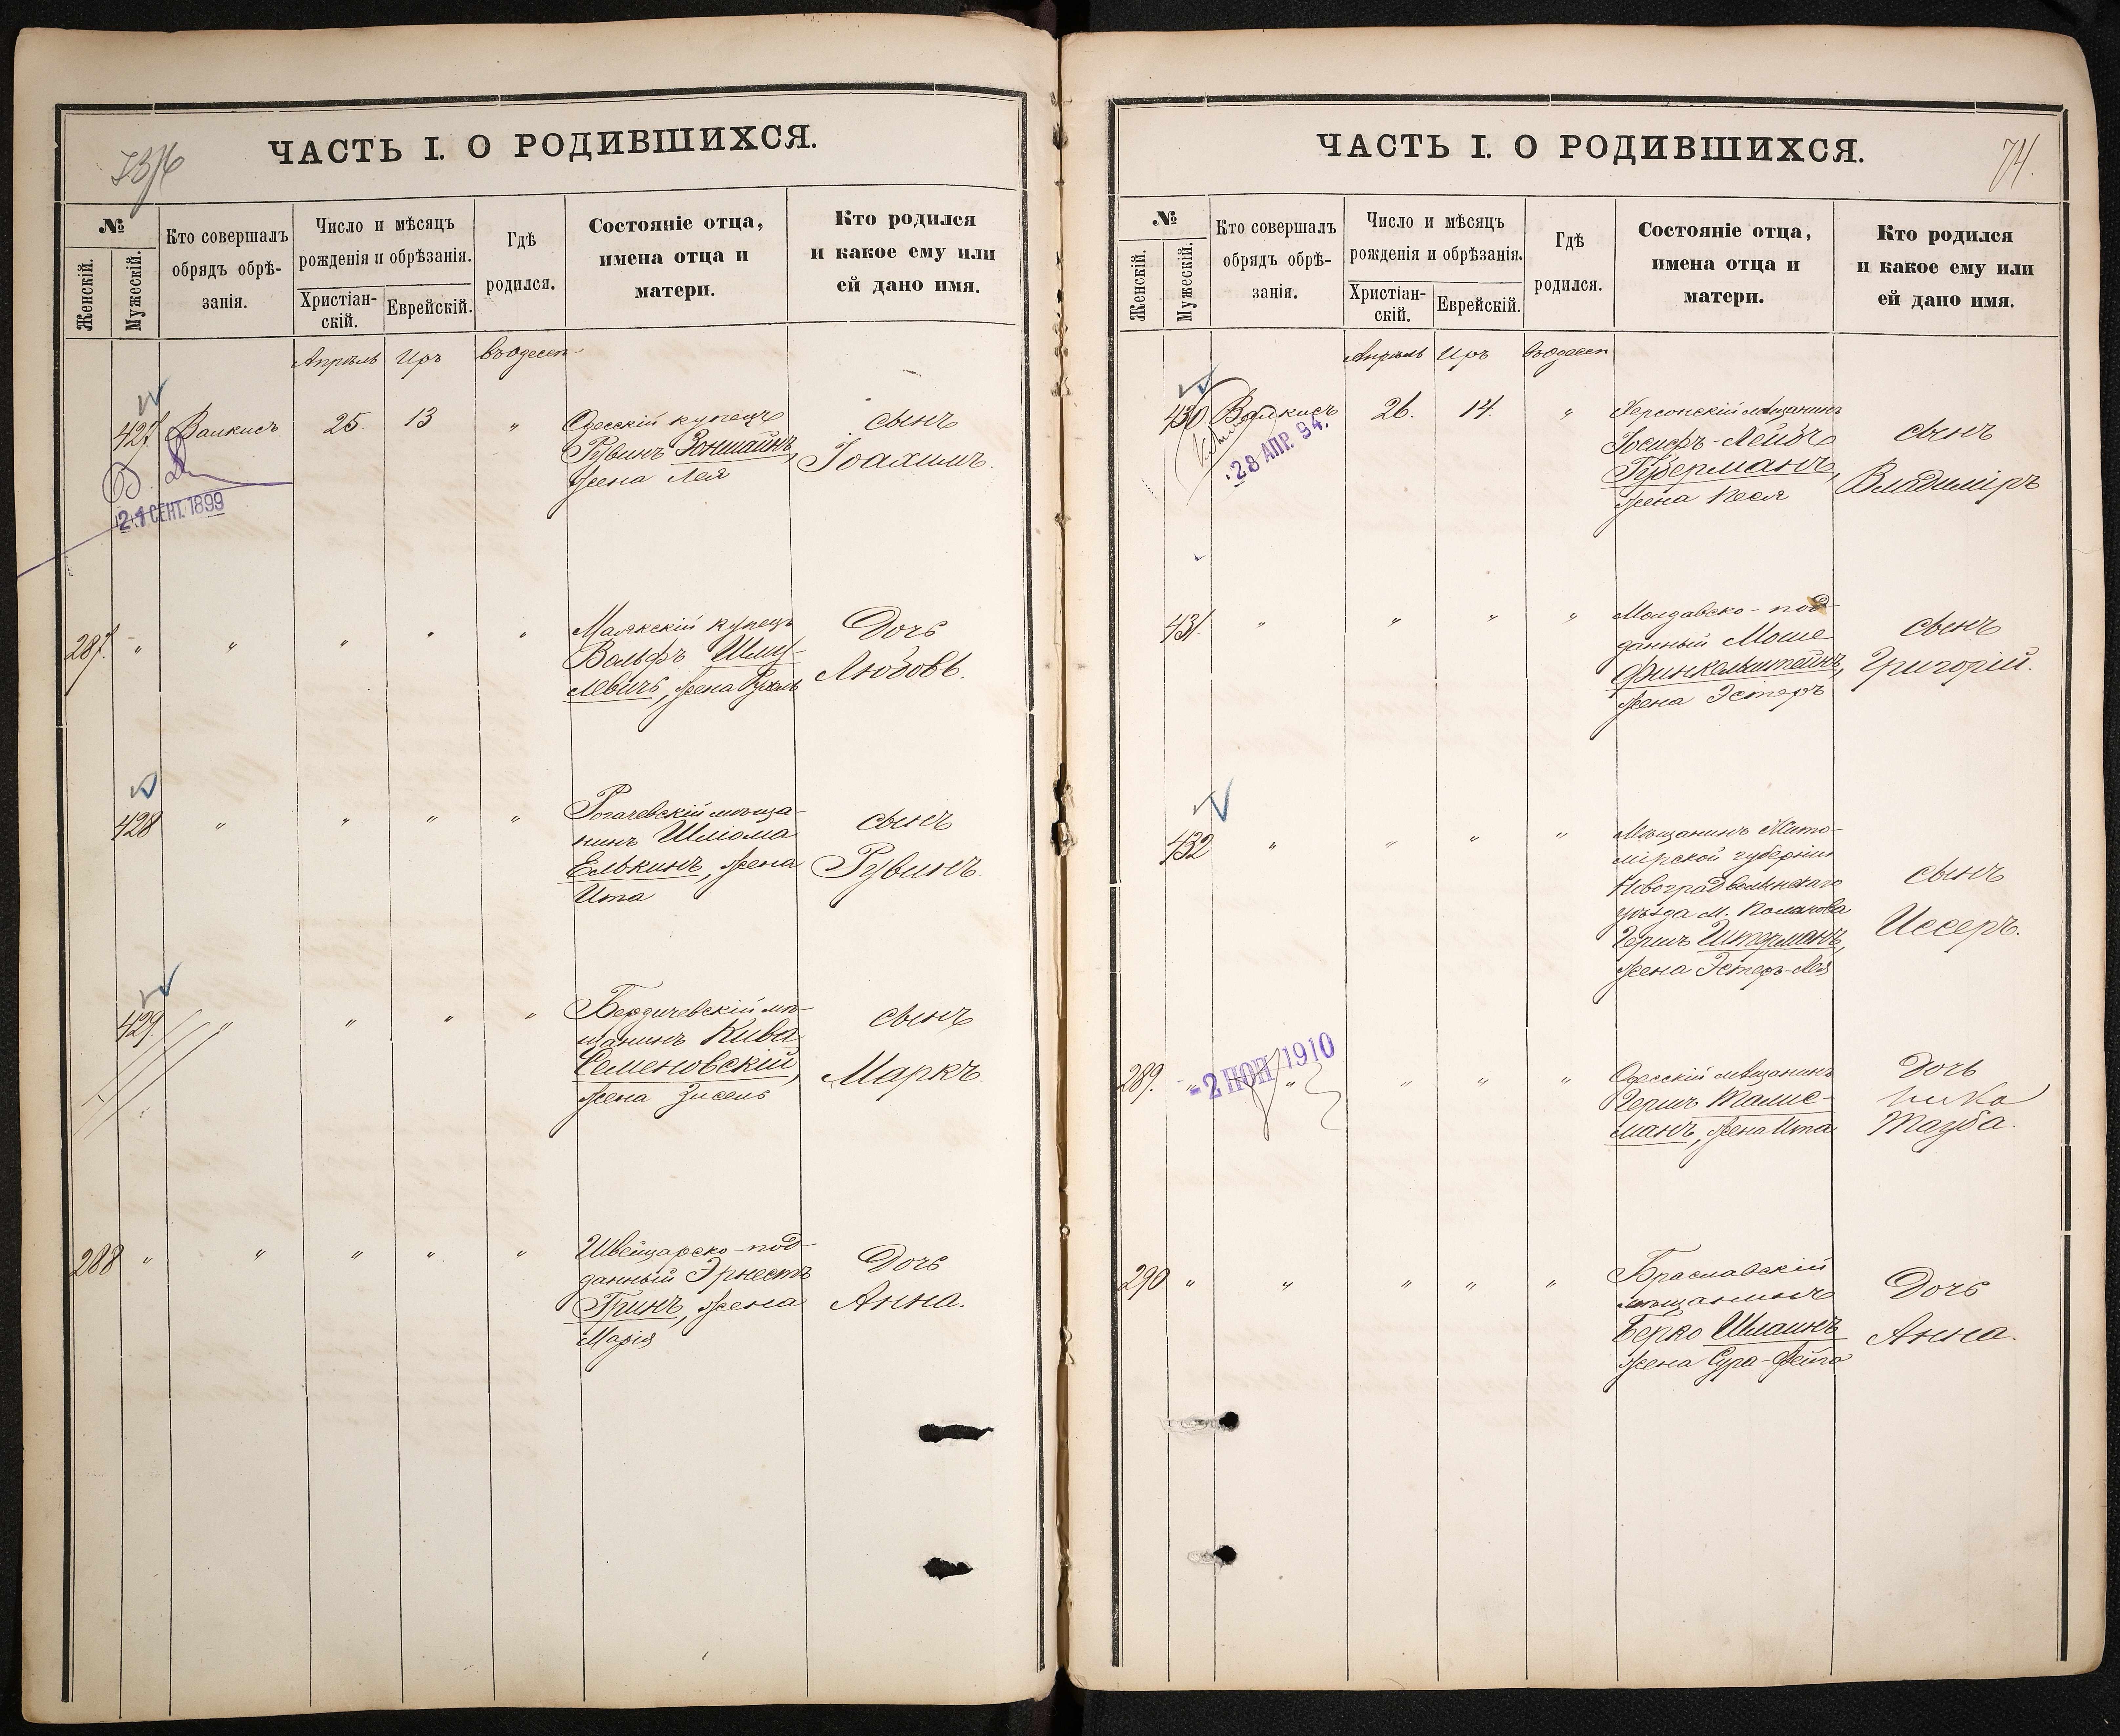 ЧАСТЬ I. О РОДИВШИХСЯ.
№
Женскій.
Мужескій.
Кто совершалъ
обрядъ обрѣ-
занія.
Число и мѣсяцъ
рожденія и обрѣзанія.
Христіан-
скій.
Еврейскій.
Гдѣ
родился.
Состояніе отца,
имена отца и
матери.
Кто родился
и какое ему или
ей дано имя.
Апрѣль Иръ въ Одессѣ
427. Валкисъ 25. 13 "
Одесскій купецъ
Рувинъ Зонштайнъ,
жена Лея
сынъ
Іоахимъ.
21 СЕНТ. 1899
287. " " " " "
Маякскій купецъ
Вольфъ Шму-
левичъ, жена Рухль
Дочь
Любовь.
428 " " " "
Рогачевскій мѣща-
нинъ Шліома
Елькинъ, жена
Ита
сынъ
Рувинъ.
429. " " " "
Бердичевскій мѣ-
щанинъ Кива
Семеновскій,
жена Зисель
сынъ
Маркъ.
288 " " " " "
Швейцарско-под-
данный Эрнестъ
Гринъ, жена
Марія
Дочь
Анна.
ЧАСТЬ I. О РОДИВШИХСЯ.
74.
№
Женскій.
Мужескій.
Кто совершалъ
обрядъ обрѣ-
занія.
Число и мѣсяцъ
рожденія и обрѣзанія.
Христіан-
скій.
Еврейскій.
Гдѣ
родился.
Состояніе отца,
имена отца и
матери.
Кто родился
и какое ему или
ей дано имя.
Апрѣль Иръ въ Одессѣ
430. Валкисъ 26. 14. "
28 АПР. 94.
Херсонскій мѣщанинъ
Іосифъ-Лейбъ
Губерманъ,
жена Песя
сынъ
Владиміръ
431. " " " "
Молдавско-под-
данный Моше
Финкельштейнъ,
жена Эстеръ
сынъ
Григорій.
432 " " " "
Мѣщанинъ Жито-
мірской губерніи
Новоградволынскаго
уѣзда м.
Гершъ Штерманъ,
жена Эстеръ-Лея
сынъ
Иссеръ.
289. " " " " "
-2 НОЯ 1910
Одесскій мѣщанинъ
Гершъ Талис-
манъ, жена Ита
Дочь
Тауба.
290 " " " " "
Браславскій
мѣщанинъ
Берко Шпаинъ
жена Сура-Фейга
Дочь
Анна.